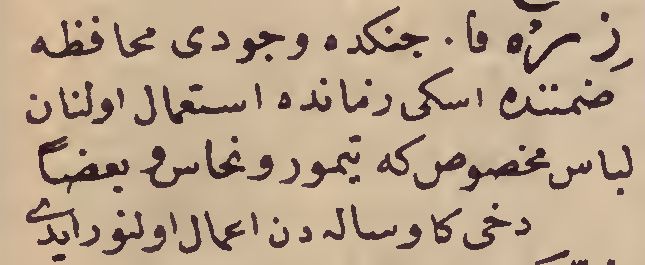 زره فا. جنكده وجودى محافظه
ضمننده اسكى زمانده استعمال اولنان
لباس مخصوص كه تيمور و نحاس و بعضاً
دخى كاوساله دن اعمال اولنور ايدى